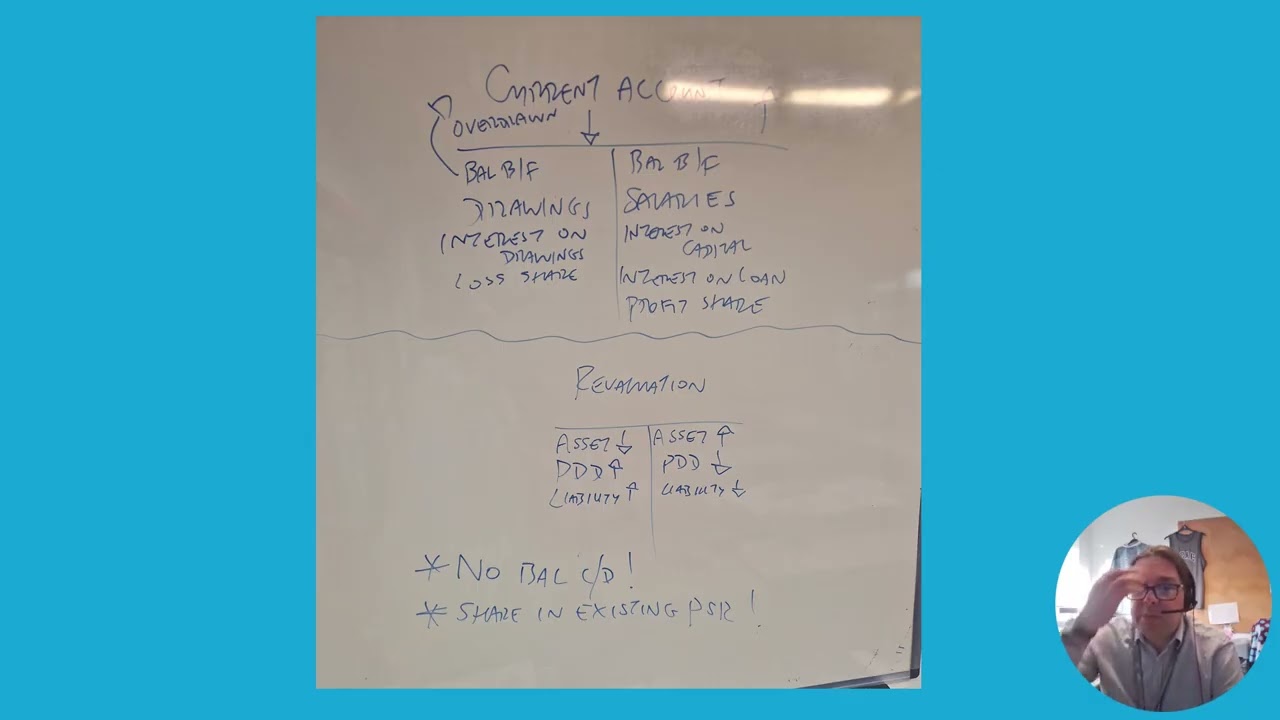 CURRENT ACCOUNT ↑
OVERDRAWN ↓
BAL B/F
DRAWINGS
INTEREST ON
DRAWINGS
LOSS SHARE
BAL B/F
SALARIES
INTEREST ON
CAPITAL
INTEREST ON LOAN
PROFIT SHARE
REVALUATION
ASSET ↓
PDD ↑
LIABILITY ↑
ASSET ↑
PDD ↓
LIABILITY ↓
* NO BAL C/D!
* SHARE IN EXISTING PSR!